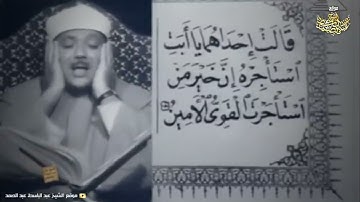 قَالَتْ إِحْدَاهُمَا يَا أَبَتِ
اسْتَأْجِرْهُ إِنَّ خَيْرَ مَنِ
اسْتَأْجَرْتَ الْقَوِيُّ الْأَمِينُ
موقع الشيخ عبد الباسط عبد الصمد